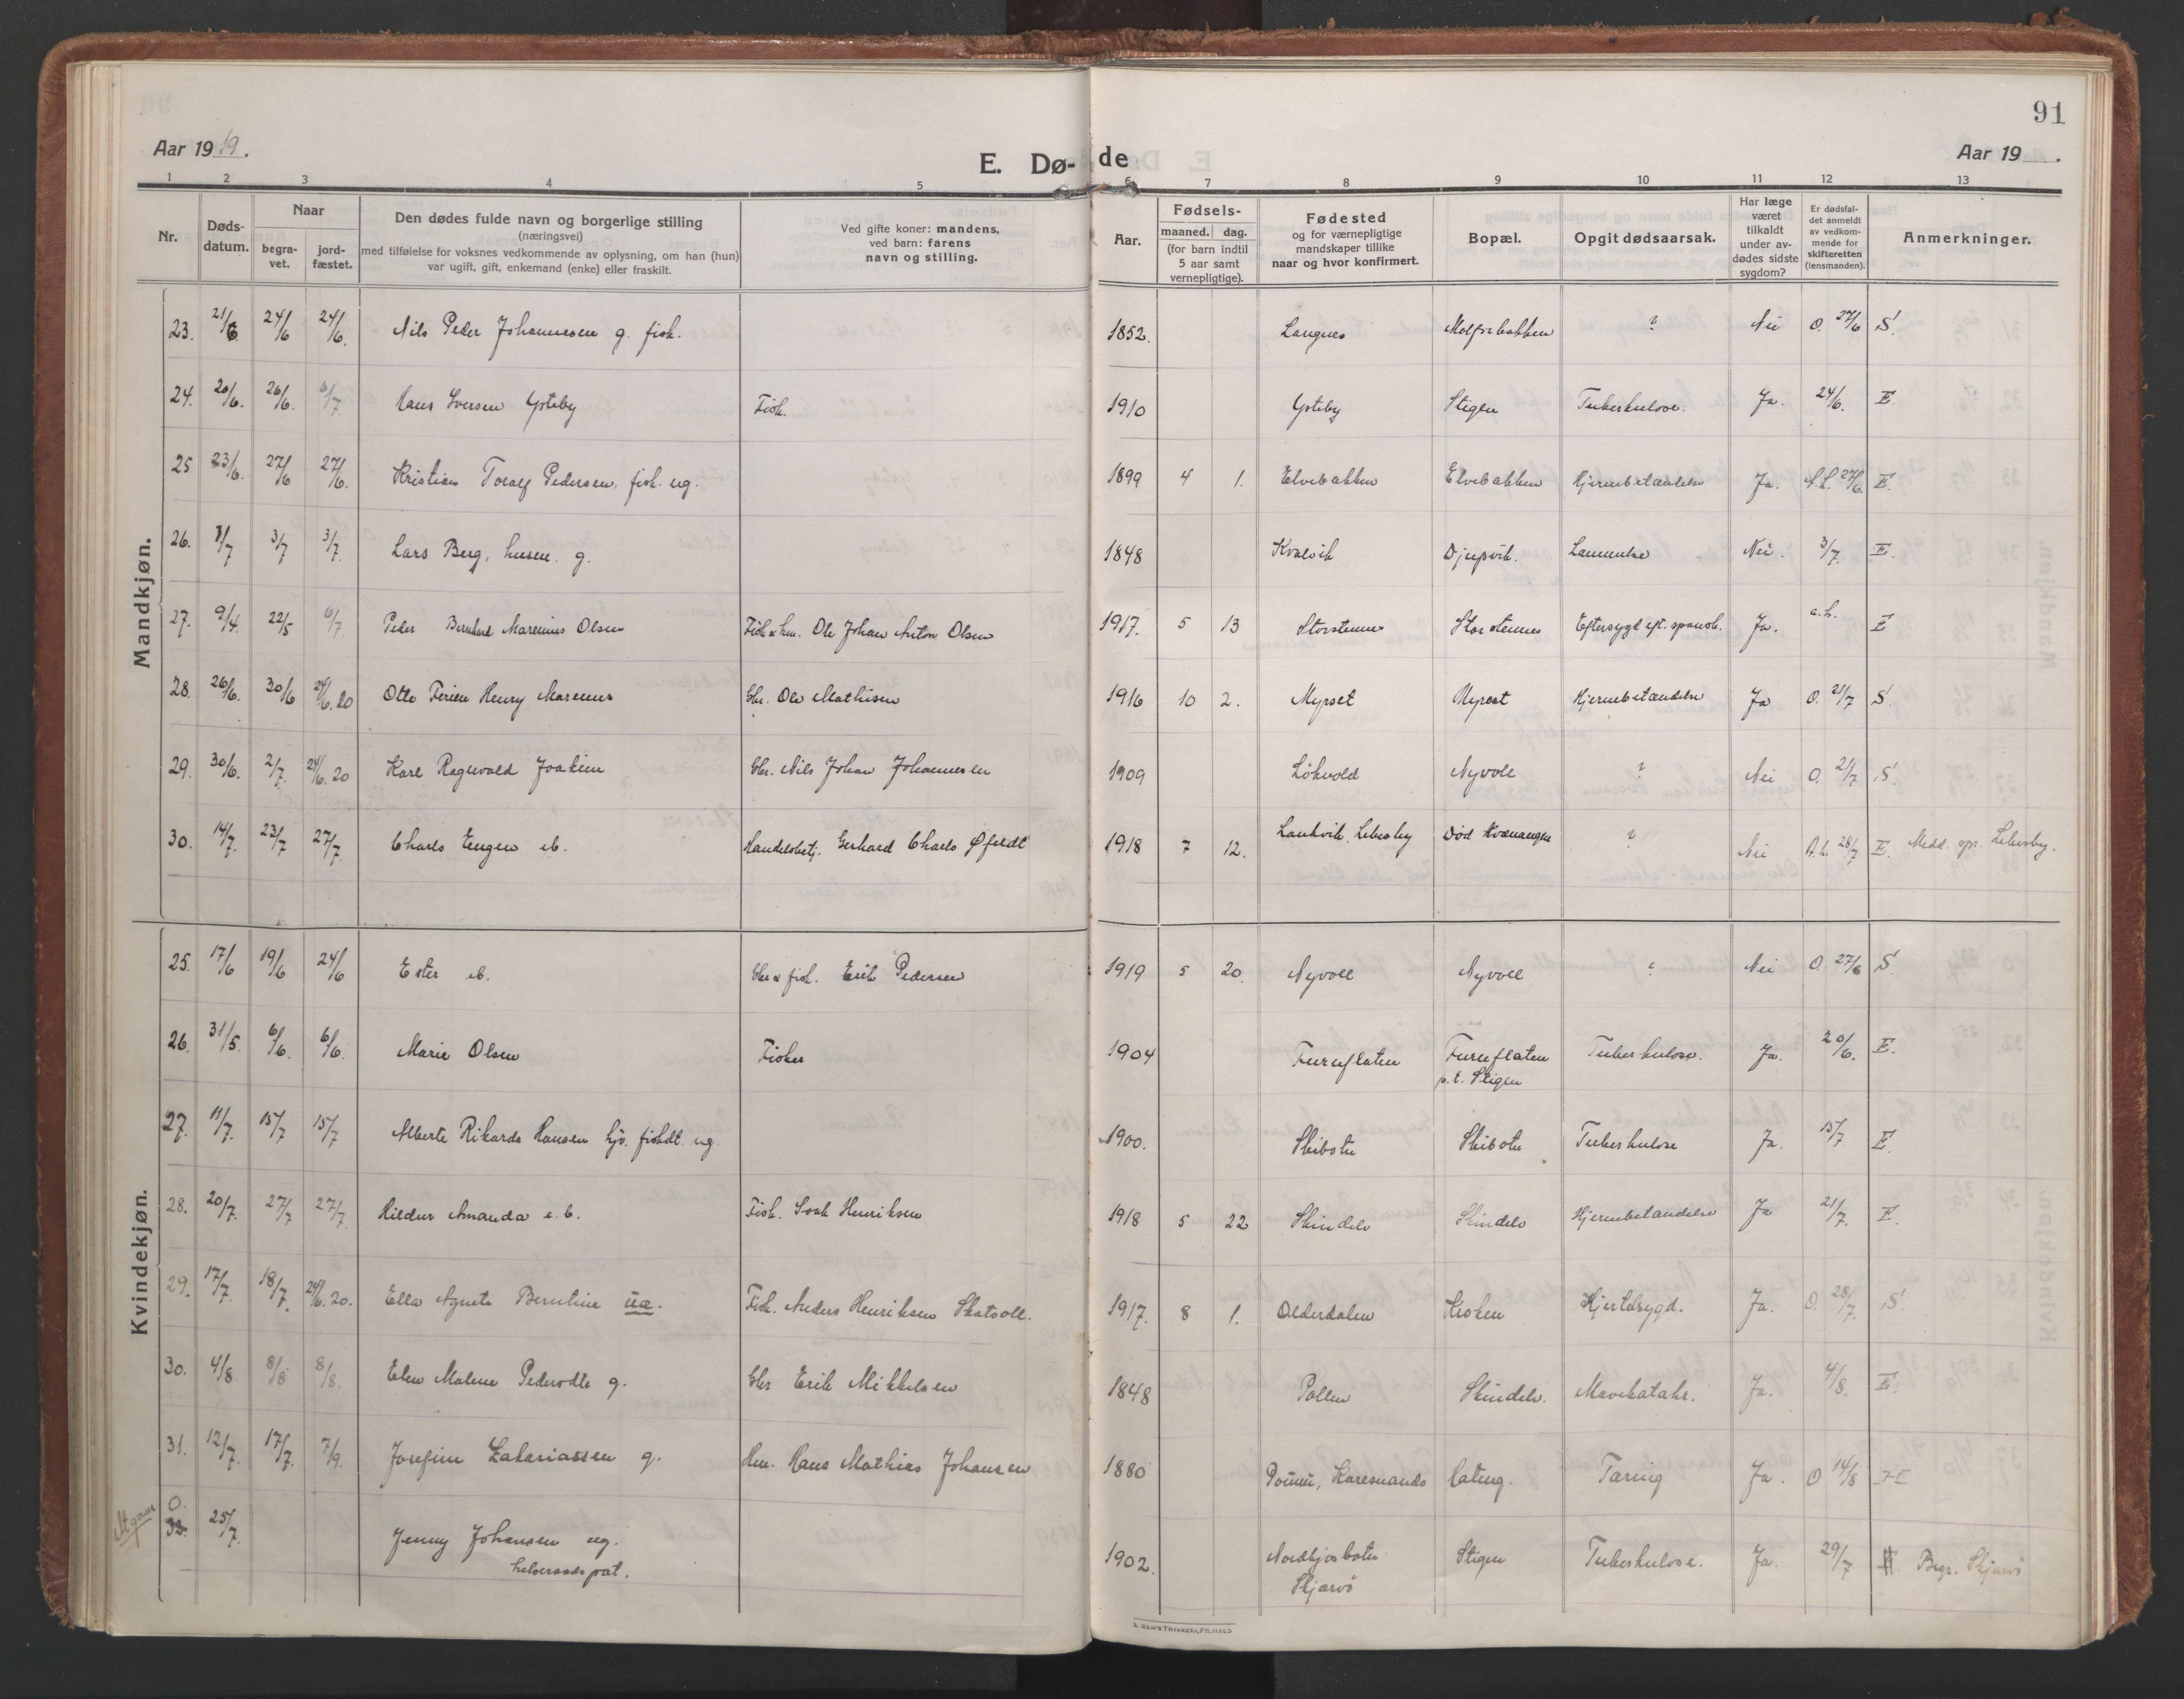 91
Aar 1919.
E. Dø-
de
Aar 19 .
1 2 3 4 5 6 7 8 9 10 11 12 13
Nr.
Døds-
datum.
Naar
begra-
vet.
jord-
fæstet.
Den dødes fulde navn og borgerlige stilling
(næringsvei)
med tilføielse for voksnes vedkommende av oplysning, om han (hun)
var ugift, gift, enkemand (enke) eller fraskilt.
Ved gifte koner: mandens,
ved barn: farens
navn og stilling.
Aar.
Fødsels-
maaned. dag.
(for barn indtil
5 aar samt
vernepligtige).
Fødested
og for værnepligtige
mandskaper tillike
naar og hvor konfirmert.
Bopæl.
Opgit dødsaarsak.
Har læge
været
tilkaldt
under av-
dødes sidste
sygdom?
Er dødsfal-
det anmeldt
av vedkom-
mende for
skifteretten
(lensmanden).
Anmerkninger.
Mandkjøn.
23. 21/6. 24/6 24/6. Nils Peder Johannesen g. fisk. 1852. Langnes ? Nei O. 27/6 S.
24. 20/6. 26/6. 6/7 Hans Iversen Ysteby Fisk. 1910 Ysteby Stigen Tuberkulose. Ja. 24/6. E.
25 23/6. 27/6 27/6. Kristian Toralf Pedersen, fisk. ug. 1899 4 1. Elvebakken Elvebakken Hjernebetændelse Ja. 27/6. E.
26. 1/7 3/7 3/7 Lars Berg, husm. g. 1848 Kvalvik Djupvik. Lammelse Nei. 3/7. E.
27. 9/4. 22/5 6/7 Peder Bernhard Marenius Olsen Fisk & hm. Ole Johan Anton Olsen 1917. 5 13 Storstennes Storstennes Eftersygd eft. spansk. Ja. a.h. E
28. 26/6. 30/6 24/6. 20 Otto Henry Marenus Gbr. Ole Mathisen 1916 10 2. Myrset Myrset Hjernebetændelse Ja O. 21/7 S.
29. 30/6. 2/7. 24/6. 20 Karl Ragnvald Joakim Gbr. Nils Johan Johannesen 1909 Løkvold Nyvoll ? Nei O. 21/7 S.
30. 14/7. 23/7 27/7. Charls Eugen eb. Handelsbetj. Gerhard Charls Øfeldt 1918 7 12. Lebesby Død Kvænangen ? Nei A.h. 28/7 E. Medd. spr. Lebesby.
Kvindekjøn.
25. 17/6 19/6 24/6 Ester eb. Gbr & fisk. Erik Pedersen 1919 5 20. Nyvoll Nyvoll ? Nei O. 27/6 S.
26. 31/5. 6/6. 6/6. Marie Olsen Fisker 1904 Furuflaten Furuflaten Tuberkulose. Ja. 20/6. E.
p.t. Stigen
27. 11/7. 15/7 15/7 Alberte Rikarda Hansen hjv. fiskdt. ug. 1900. Skibotn Skibotn Tuberkulose Ja. 15/7 E.
28. 20/7. 27/7 27/7. Hildur Amanda e.b. Fisk. Isak Henriksen 1918 5 22 Skindelv Skindelv Hjernebetændelse Ja 21/7. E.
29. 17/7. 18/7. 24/6. 20. Ella Agnete Berntine ua. Fisk. Anders Henriksen Skatvoll. 1917. 8 1. Olderdalen Kroken Hjertesygd. Ja. O. 28/7. S.
30. 4/8. 8/8 8/8. Elen Malene Pedersdtr g. Gbr Erik Mikkelsen 1848 Pollen Skindelv. Mavekatahr. Ja. 4/8. E.
31. 12/7. 17/7. 7/9. Josefine Zakariassen g. Hm. Hans Mathias Johansen 1880 Karesuando Tæring Ja. O 14/8
Utgaar
0.
32. 25/7. Jenny Johansen ug. 1902. Nordkjosbotn Stigen Tuberkulose. Ja. 29/7 Begr. Skjærvø
helseraadspat. Skjærvø